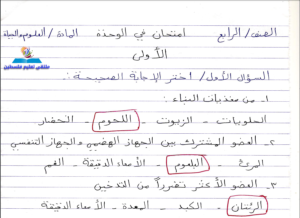 الصف/ الرابع   امتحان في الوحدة   المادة/ العلوم والحياة
الأولى
ملتقى تعليم فلسطين
السؤال الأول/ اختر الإجابة الصحيحة :
١- من مغذيات البناء :
الحلويات - الزيوت - اللحوم - الخضار
٢- العضو المشترك بين الجهاز الهضمي والجهاز التنفسي
المرئ - البلعوم - الأمعاء الدقيقة - الفم
٣- العضو الأكثر تضرراً من التدخين
الرئتان - الكبد - المعدة - الأمعاء الدقيقة